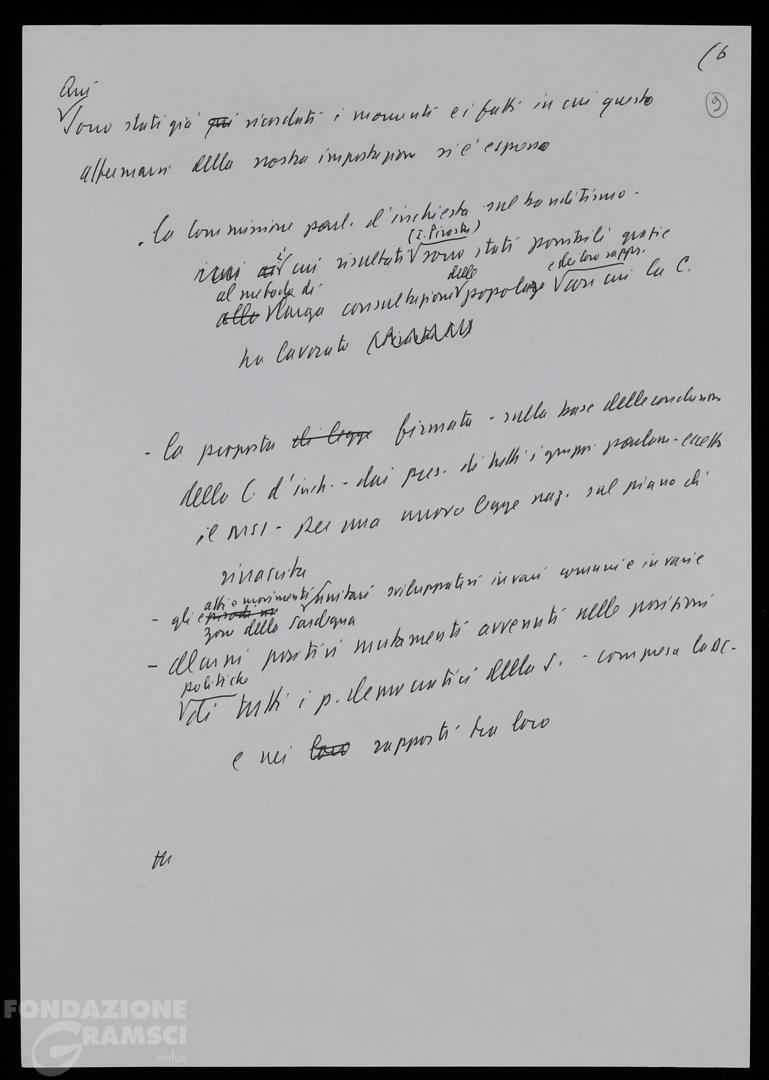 (6
9
Qui
Sono stati già qui ricordati i momenti e i fatti in cui questo
affermarsi della nostra impostazione si è espresso
- la Commissione parl. d'inchiesta sul banditismo -
(I. Pirastu)
i cui risultati sono stati possibili grazie
al metodo di delle e dei loro rappr.
alla larga consultazione popolaz. con cui la C.
ha lavorato
- la proposta di legge firmata - sulla base delle conclusioni
della C. d'inch. - dai pres. di tutti i gruppi parlam. eccetto
il MSI - per una nuova legge naz. sul piano di
rinascita
atti o movimenti
- gli episodi unitari sviluppatisi in vari comuni e in varie
zone della Sardegna
- alcuni positivi mutamenti avvenuti nelle posizioni
politiche
di tutti i p. democratici della S. - compresa la DC -
e nei loro rapporti tra loro
FONDAZIONE
GRAMSCI
onlus